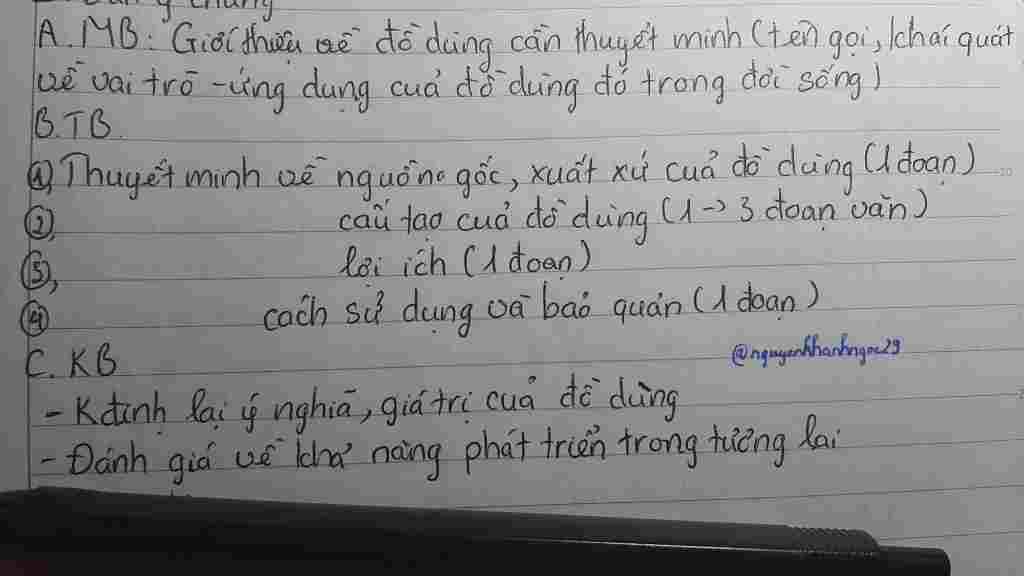 ý chung
A. MB: Giới thiệu về đồ dùng cần thuyết minh (tên gọi, khái quát
về vai trò - ứng dụng của đồ dùng đó trong đời sống)
B. TB
①, Thuyết minh về nguồn gốc, xuất xứ của đồ dùng (1 đoạn)
②, cấu tạo của đồ dùng (1 → 3 đoạn văn)
③, lợi ích (1 đoạn)
④ cách sử dụng và bảo quản (1 đoạn)
C. KB
@nguyenkhanhngoc29
- Kđịnh lại ý nghĩa, giá trị của đồ dùng
- Đánh giá về khả năng phát triển trong tương lai